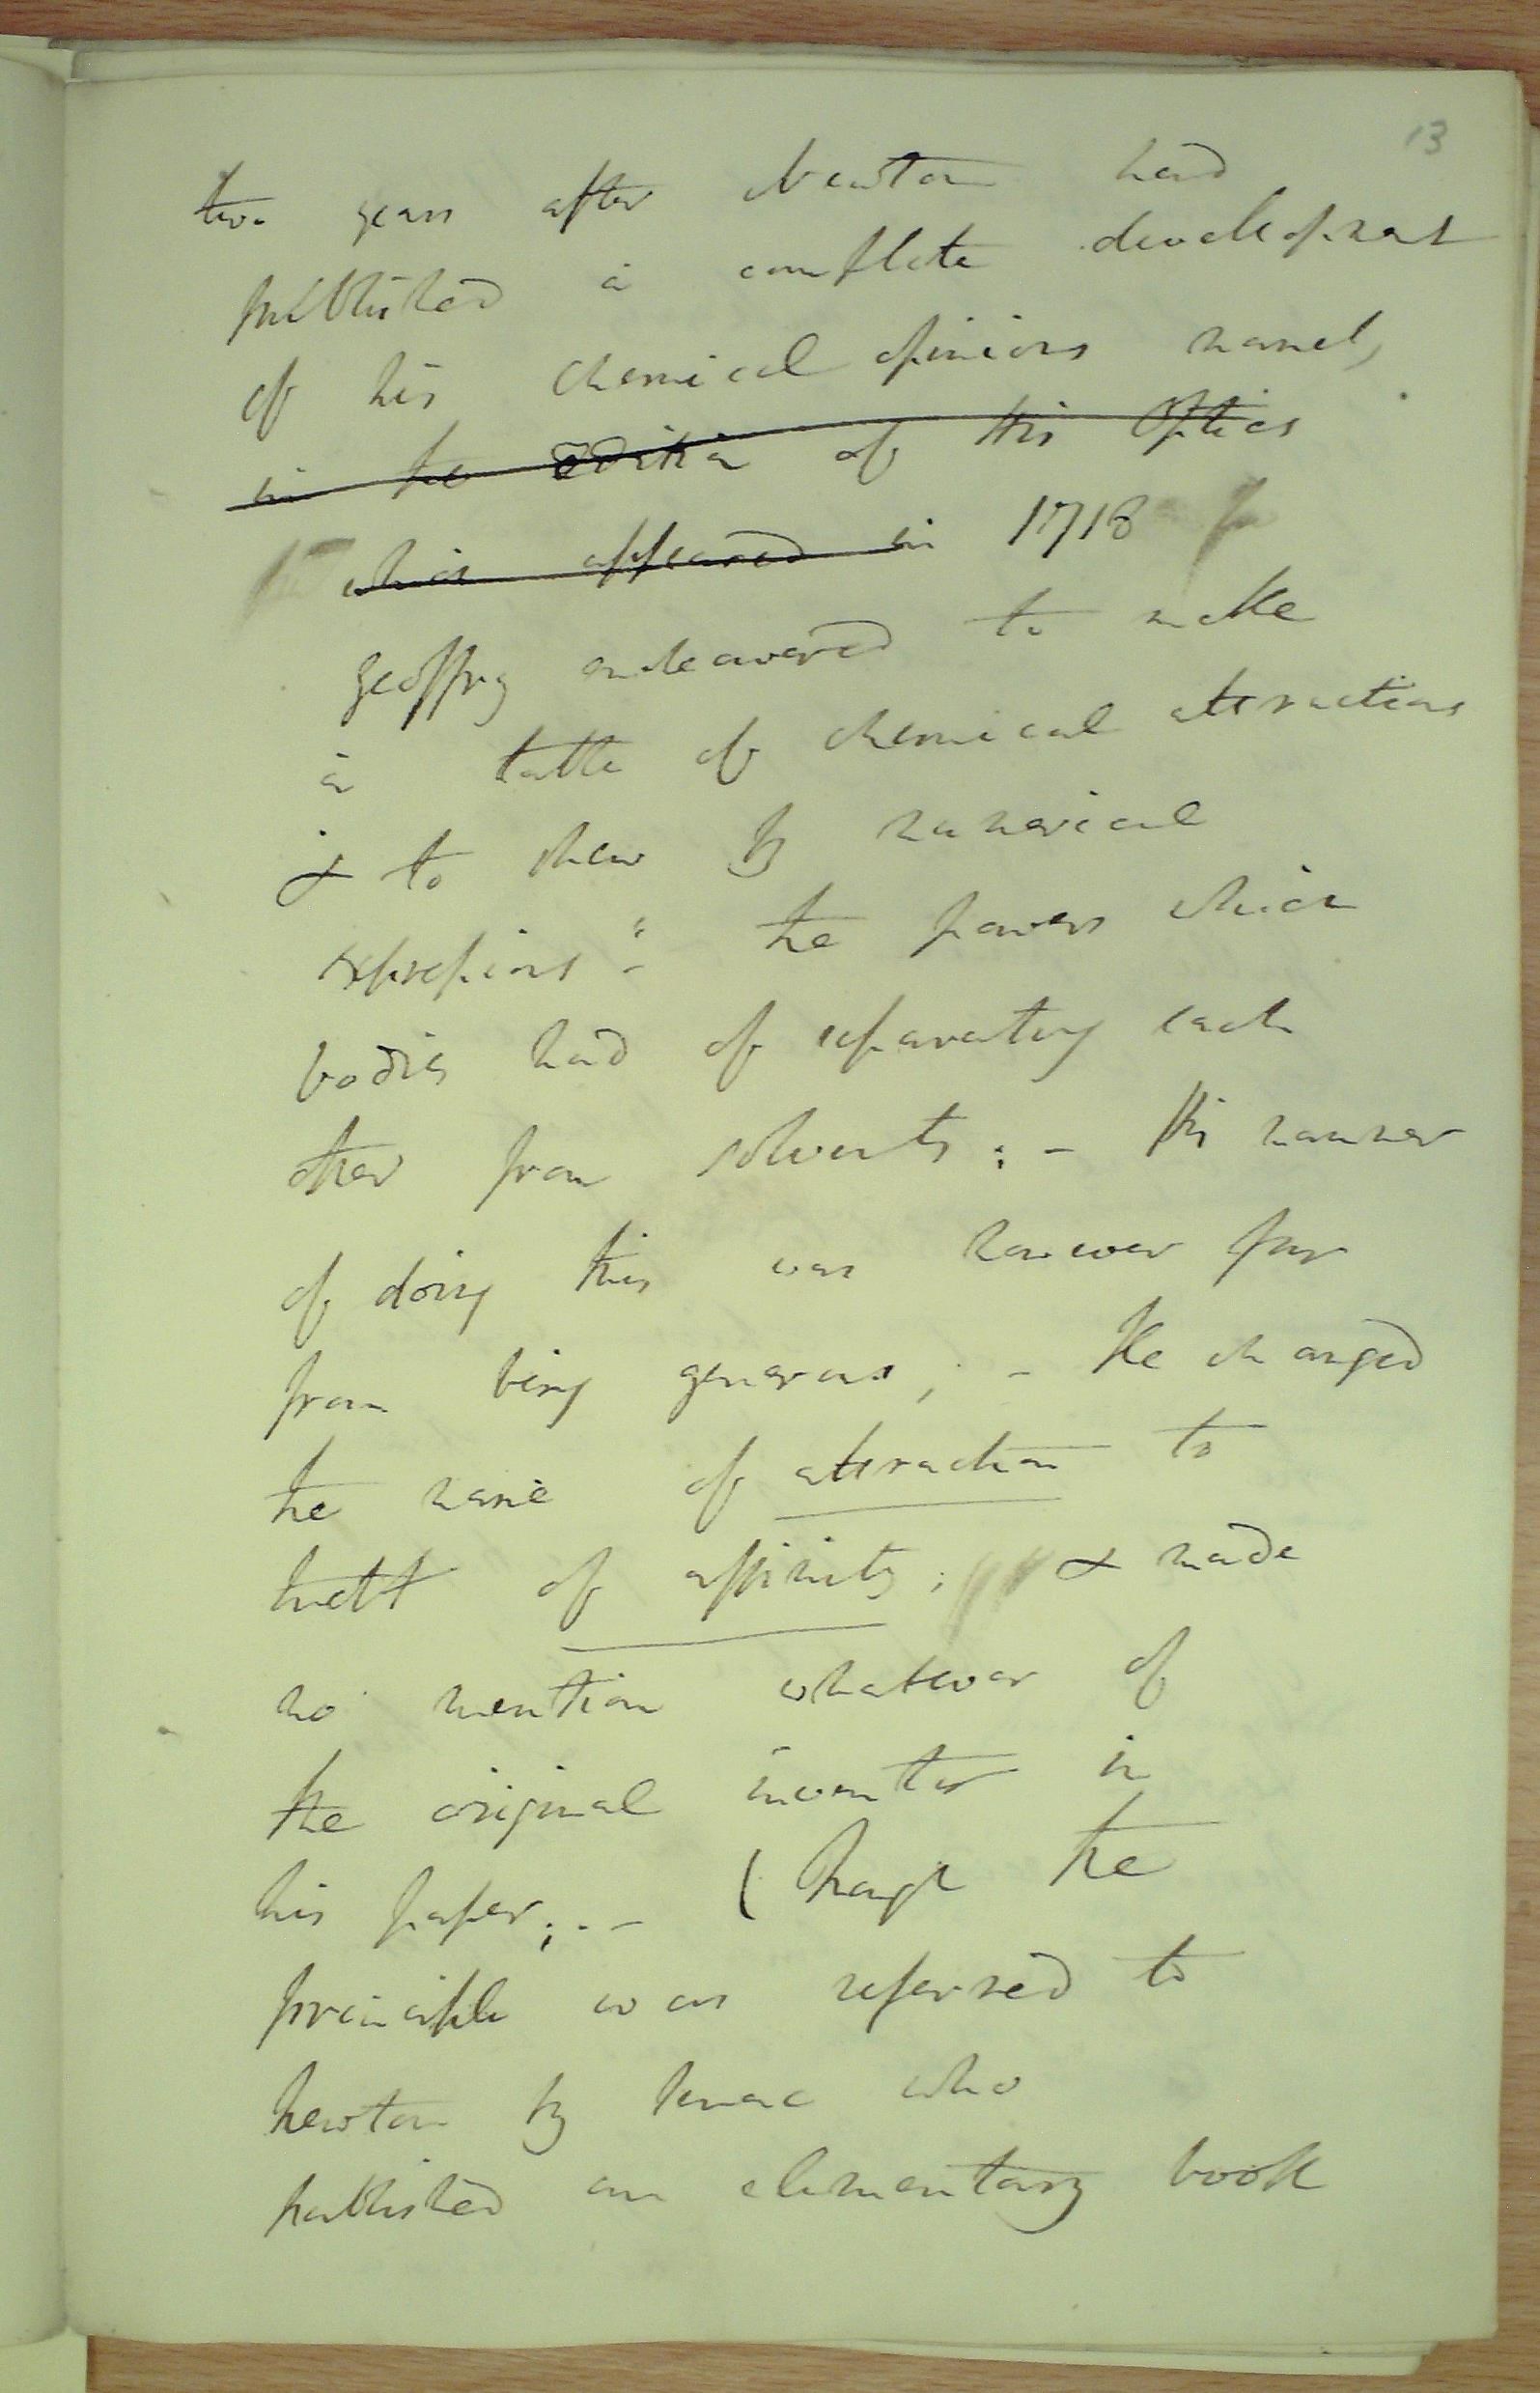 13
two years after Newton had
published a complete development
of his chemical opinions namely
in the edition of His Optics
which appeared in 1718
Geoffry endeavored to make
a table of chemical attractions
& to shew by numerical
expressions the powers which
bodies had of separating each
other from solvents: - His manner
of doing this was however far
from being generous; - He changed
the name of attraction to
that of affinity; & made
no mention whatever of
the original inventor in
his paper; . - (though the
principle was referred to
Newton by Senac who
published an elementary book